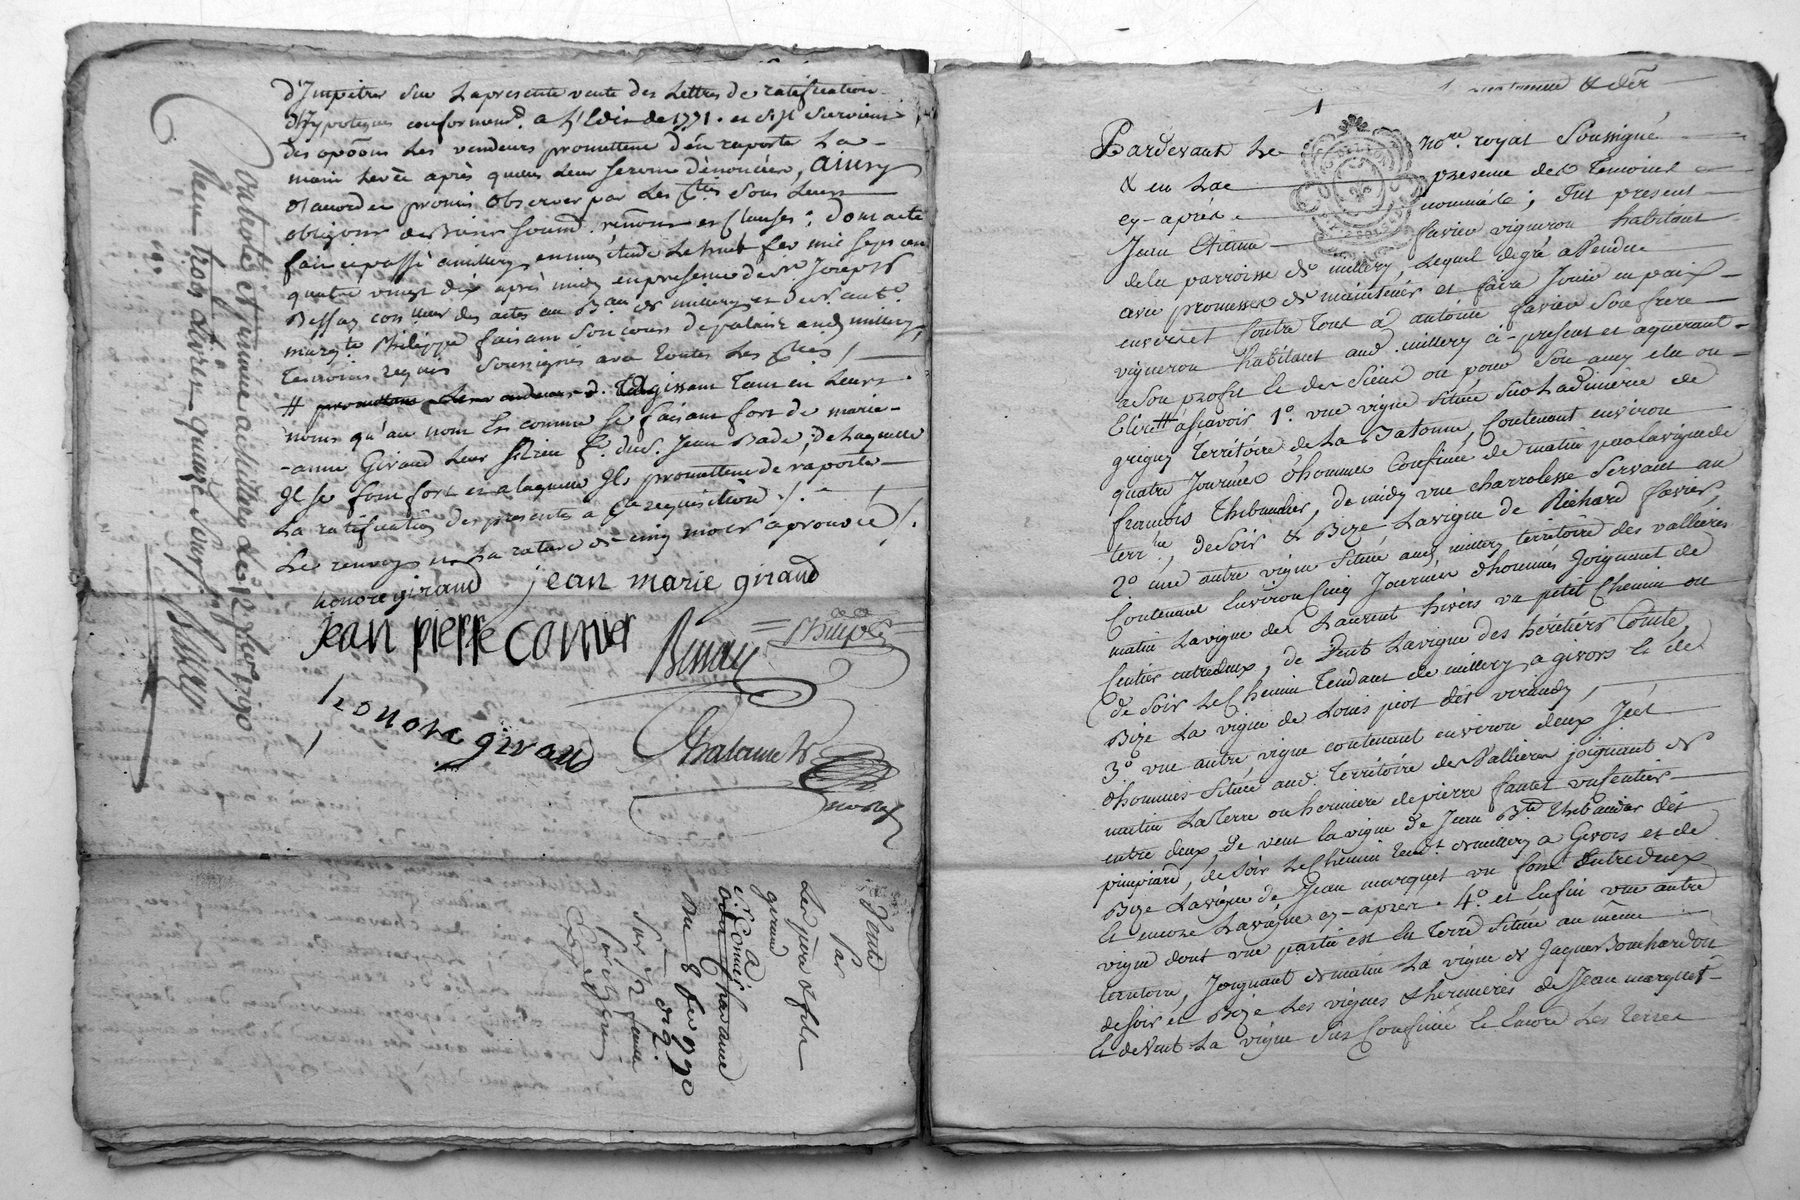 d'Impetrer sur La presente vente des Lettres de ratification
d'hypoteques conformemt. a L'Edit de 1771. et S'Il Survient
des opõõns Les vendeurs promettent d'en raporter La
main Levée après qu'elles Leur Seront dénoncées, Ainsy
D'accord et promis observer par Les ptie Sous Leurs
obligõns et Clauses: Dont acte
fait et passé a millery, en mon étude Le huit fev. mil Sept cent
quatre vingt dix après midy en presence de Sr. Joseph
Bessay Con lleur des actes au B.au de millery et de S. ant.e
marg.te Philippe faisant Son cours de palais aud. millery,
temoins requis Soussignés avec toutes Les ptes /.
# agissant tant en Leurs
noms qu'au nom Et comme Se faisant fort de marie
anne Giraud Leur f.e dud. Jean Bade, de Laquelle
Ils Se font fort et a laquelle Ils promettent de raporter
La ratification des presentes a p.re requisition ./.
Le renvoy et La rature de cinq mots aprouvée /.
honore giraud jean marie giraud
jean pierre connier
Bessay
Philippe
honore giraud
Controlé et Insinué a millery Le 12 fev. 1790
Reçu trois Livres quinze Sous
Bessay
Vente
Par
Les père & fils
giraud
a
Sr. Connier
Du 8 fev. 1790
1
Pardevant Le no.re royal Soussigné
& en La presence des Temoins
cy-après nommés; fut present
Jean Etienne favier vigneron habitant
de la parroisse de millery, Lequel de gré a Vendu
avec promesse de maintenir et faire Jouir en paix
envers et Contre Tous a antoine favier Son frere
vigneron habitant aud. millery ci-present et aquerant
a Son profit et des Siens ou pour Son amy elu ou
Elire # ascavoir 1.o une vigne Située Sur La dimerie de
grigny Territoire de La Batonne, Contenant environ
quatre Journées d'hommes Confinée de matin par la vigne de
françois Thibaudier, de midy une charrolesse Servant au
terr.re, de Soir & Bize La vigne de Richard favier,
2.o une autre vigne Située aud. millery territoire des vallieres
Contenant Environ Cinq Journées d'hommes Joignant de
matin La vigne de Laurent hivers un petit Chemin ou
Sentier entredeux, de Vent La vigne des héritiers Comte,
de Soir Le Chemin Tendant de millery a givors et de
Bize La vigne de Louis piot dit verundy,
3.o une autre vigne contenant environ deux Jées
d'hommes Située aud. Territoire des Vallieres joignant de
matin La Terre ou hermiere de pierre fantet un Sentier
entre deux, de vent la vigne de Jean B.te Thibaudier dit
pimpiare, de Soir Le Chemin tend.t de millery a Givors et de
Bize La vigne de Jean marquet un fossé Entredeux
Et encore La vigne cy-après 4.o et Enfin une autre
vigne dont une partie est En Terre Située au même
territoire, Joignant de matin La vigne de Jaques Bouchardon
de Soir et Bize Les vignes & hermieres de Jean marquet
Et de Vent La vigne Sus Confinée Et Encore Les terres